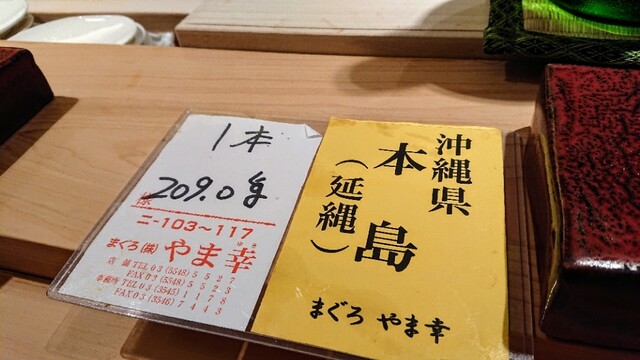 1本
209.0
様
ニ-103~117
まぐろ(株)やま幸
ゆき
店舗TEL03(5548)5527
FAX03(5548)5523
事務所TEL03(3545)1178
FAX03(3546)7443
沖縄県
本島
(延縄)
まぐろ やま幸